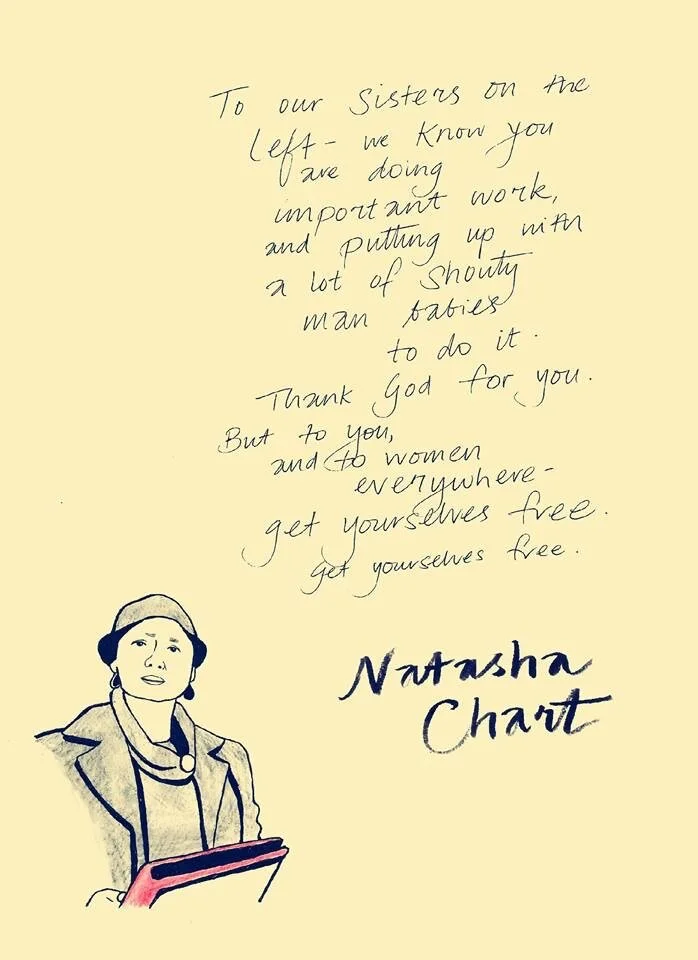 To our sisters on the
left - we know you
are doing
important work,
and putting up with
a lot of shouty
man babies
to do it.
Thank God for you.
But to you,
and to women
everywhere -
get yourselves free.
get yourselves free.
Natasha
Chart